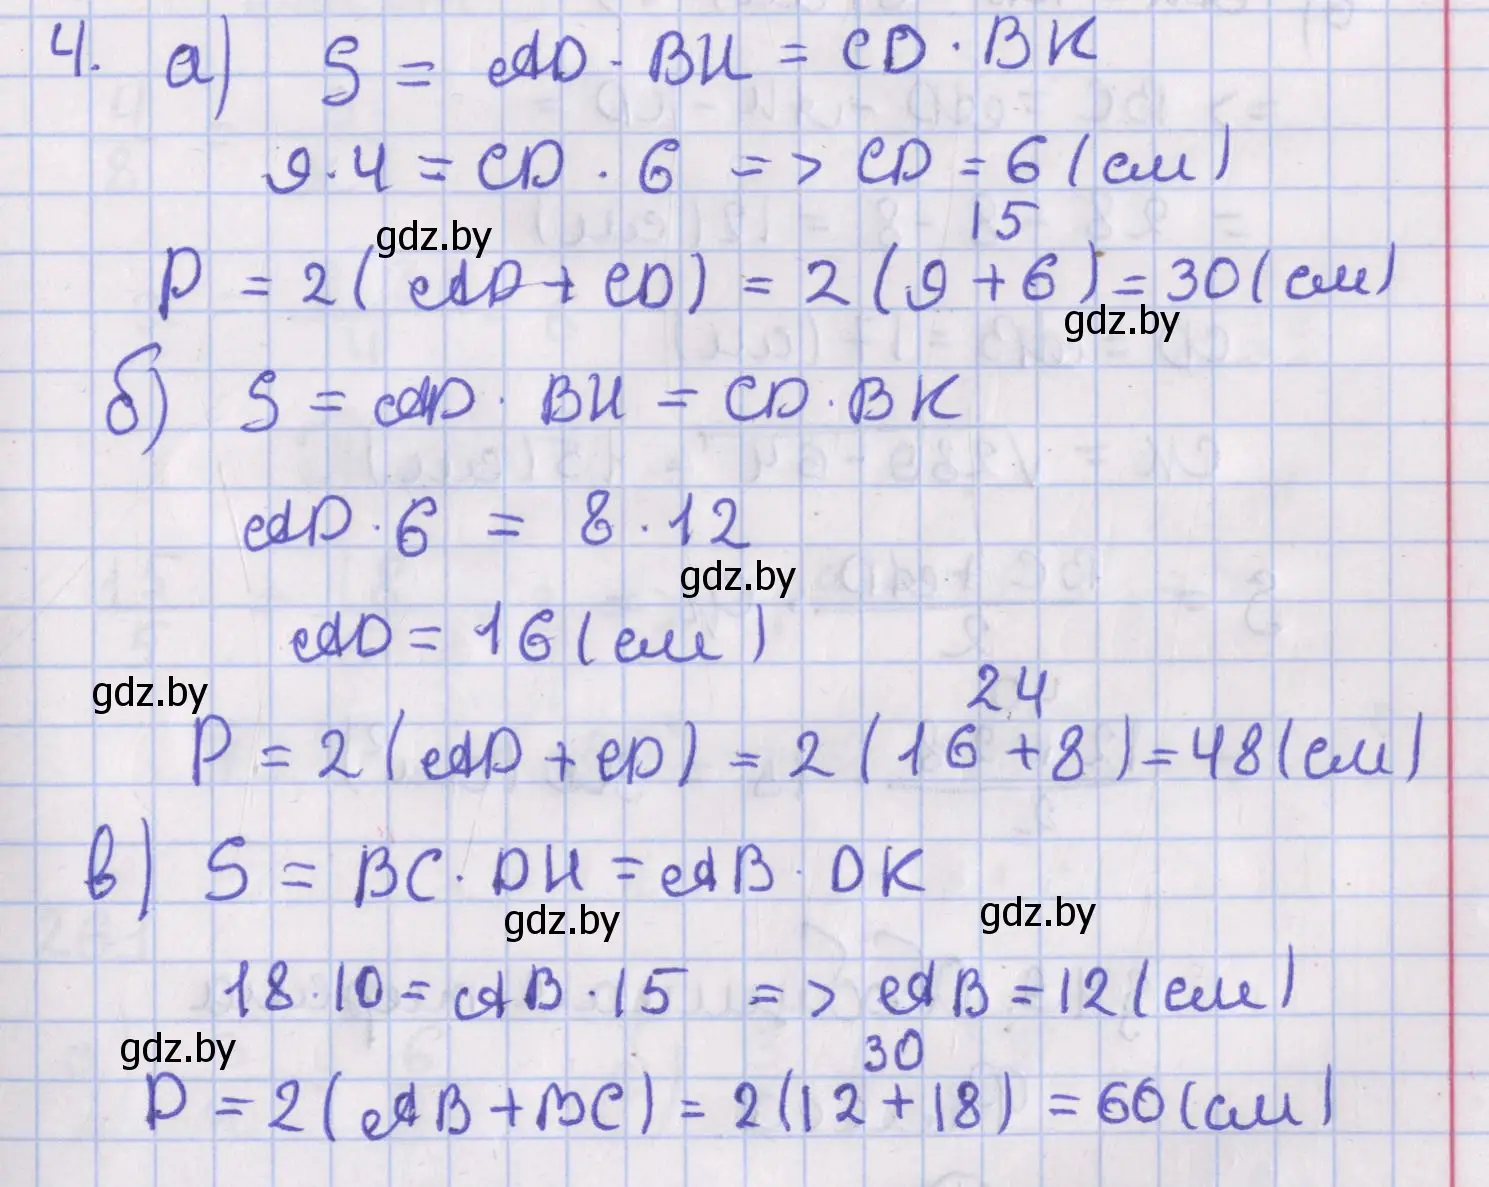 4. а) S = AD · BH = CD · BK
9·4 = CD · 6 => CD = 6 (см)
15
gdz.by
P = 2 (AD + CD) = 2 (9 + 6) = 30 (см)
gdz.by
б) S = AD · BH = CD · BK
AD · 6 = 8 · 12
gdz.by
AD = 16 (см)
gdz.by
24
P = 2 (AD + CD) = 2 (16 + 8) = 48 (см)
в) S = BC · DH = AB · DK
gdz.by
gdz.by
18·10 = AB · 15 => AB = 12 (см)
gdz.by
30
P = 2 (AB + BC) = 2 (12 + 18) = 60 (см)